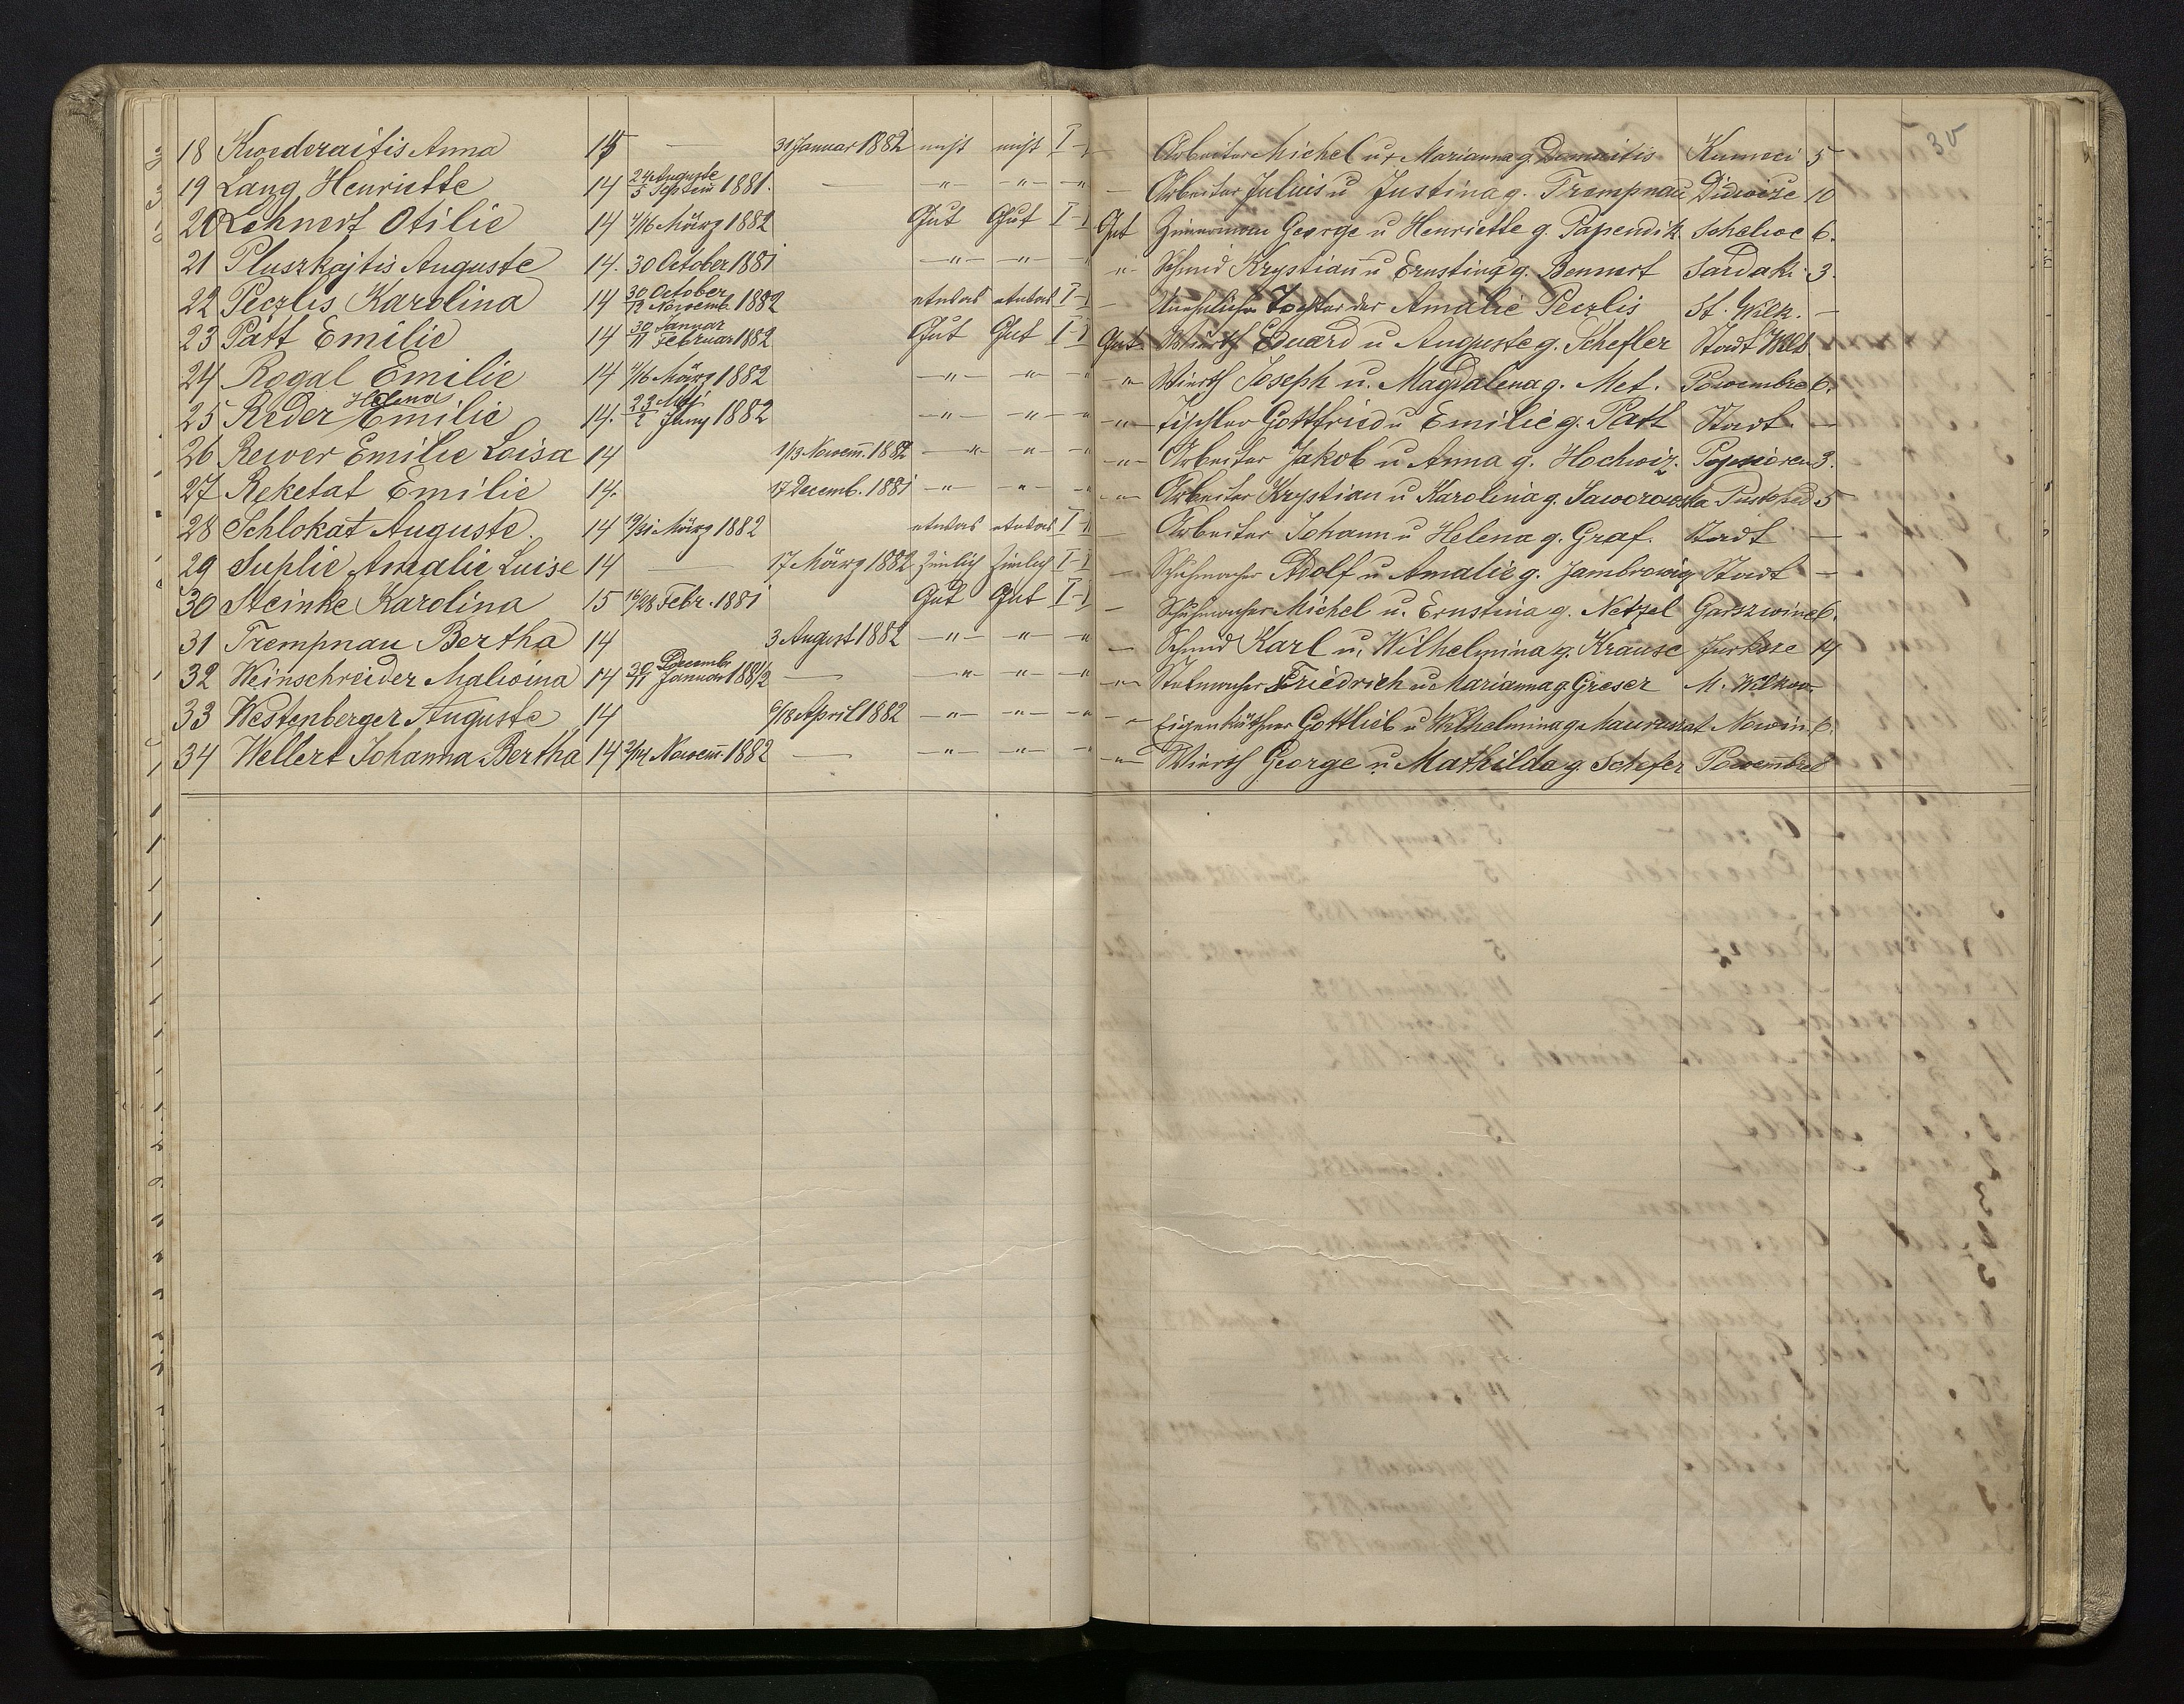 35
18 Kwederaitis Anna 15 — 31 Januar 1882 nicht nicht I — Arbeiter Michel u. Marianna g. Domaitis Kumeci 5
19 Lang Henriette 14 24 Auguste / 5 Septem 1881. — -"- -"- -"- — Arbeiter Juluis u Justina g. Trempnau Didwize 10
20 Lehnert Otilie 14 4/16 März 1882 Gut Gut I-I Gut Zimermann George u Henriette g. Papendik Schelwe 6.
21 Pluszkajtis Auguste 14. 30 October 1881 -"- -"- -"- -"- Schmid Krystian u Ernstina g. Bennert Sardak. 3.
22 Peczlis Karolina 14 30 October / 12 Nowemb. 1882 etwas etwas I-I — Unehliche Tochter der Amalie Peczlis St. Wilk. —
23 Patt Emilie 14 30 Januar / 11 Februar 1882 Gut Gut I-I Gut. Wirth Eduard u Auguste g. Schefler Stadt Wilk
24 Rogal Emilie 14 4/16 März 1882 -"- -"- -"- -"- Wierth Joseph u. Magdalena g. Met. Powembre 6.
25 Reder Helena Emilie 14. 23 Mai / 2 Juny 1882 -"- -"- -"- -"- Tischler Gottfried u Emilie g. Path Stadt. —
26 Rewer Emilie Loisa 14 1/13 Nowem. 1882 -"- -"- -"- -"- Arbeiter Jakob u Anna g. Hochwiz. 3.
27 Reketat Emilie 14. 17 Decemb. 1881 -"- -"- -"- -"- Arbeiter Krystian u Karolina g. Saworowska 5
28 Schlokat Auguste. 14 19/31 März 1882 etwas etwas I-I — Arbeiter Johann u Helena g. Graf. Stadt —
29 Suplie Amalie Luise 14 — 17 März 1882 Zimlich Zimlich I-I — Schuhmacher Adolf u Amalie g. Jambrowig Stadt —
30 Steinke Karolina 15 16/28 Febr. 1881 Gut Gut I-I — Schuhmacher Michel u. Ernstina g. Netzel Garszwine 6.
31 Trempnau Bertha 14 3 August 1882 -"- -"- -"- — Schmid Karl u. Wilhelmina g. Krause Jurksze 14
32 Weinschreider Malwina 14 30 Decembr / 11 Januar 1881/2 — -"- -"- -"- -"- Stelmacher Friedrich u. Marianna g. Greser M. Wilkow.
33 Westenberger Auguste 14 6/18 April 1882 -"- -"- -"- -"- Eigenkäthner Gottlieb u Wilhelmina g. Mauruszat Nowin. 6.
34 Wellert Johanna Bertha 14 2/14 Nowem. 1882 — -"- -"- -"- -"- Wierth George u. Mathilda g. Schefer Powembre 6